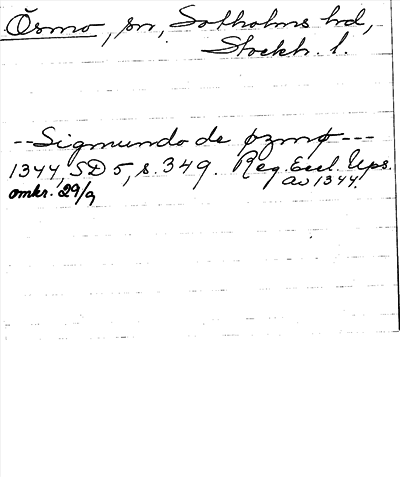 Ösmo, sn, Sotholms hd,
Stockh. l.
--Sigmundo de øzmø---
1344, SD 5, s. 349. Reg. Eccl. Ups.
av 1344.
omkr. 29/9